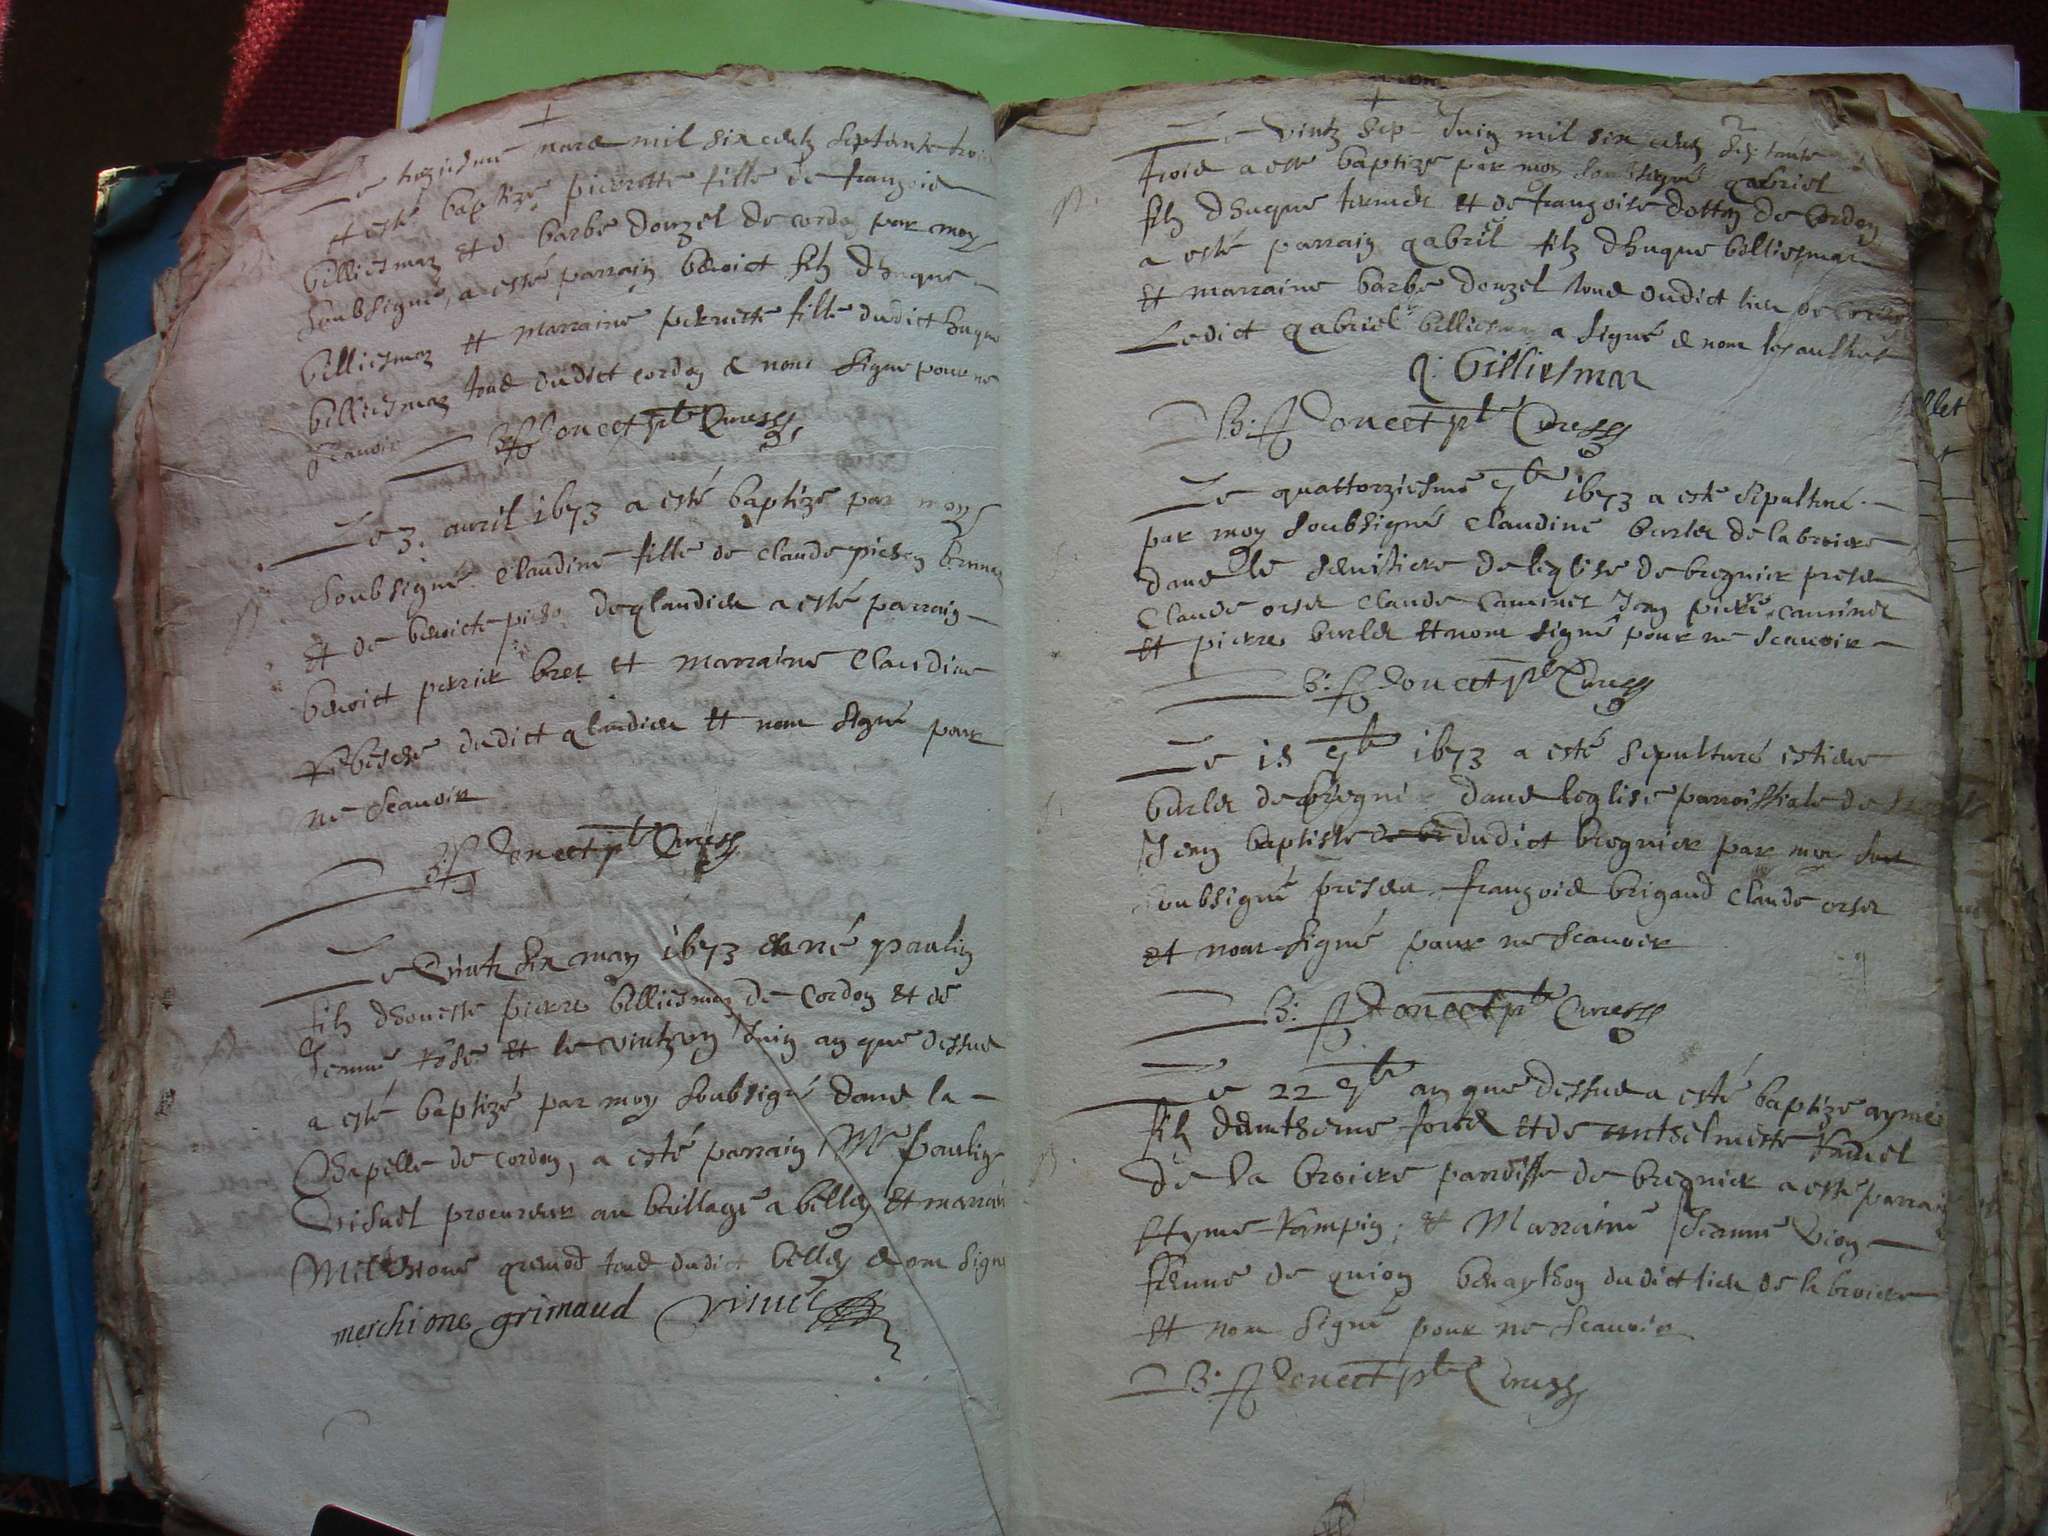 Le treziesme mars mil six centz septante trois
a esté baptizé pierrette fille de françois
billiesmaz et d barbe douzel de cordon par moy
soubsigné, a esté parrain benoict filz dhugue
billiesmaz et marraine pernette fille dudict hugue
billiesmaz tous dudict cordon & nont signé pour ne
scavoir B: Doncet pbr Curé
Le 3. avril 1673 a esté baptizé par moy
soubsigné Claudine fille de Claude
et de benoicte deglandieu a esté parrain
benoict perrier bret et marraine Claudine
dudict glandieu et nont signé pour
ne scavoir
B: Doncet pbr Curé
Le vintz six may 1673 est né paulin
filz dhoneste pierre billiesmaz de Cordon et de
Jeanne rose et le vintz un Juin an que dessus
a esté baptizé par moy soubsigné dans la
Chapelle de cordon, a esté parrain Me paulin
Visuel procureur au baillage a belley et marrain
Melchione grimod tous dudict belley & ont signé
merchione grimaud
Le vintz sep Juin mil six centz septante
trois a esté baptizé par moy soubsigné gabriel
filz dhugue et de françoise de Cordon
a esté parrain gabriel filz dhugue billiesmaz
et marraine barbe douzel tous dudict lieu de Cordon
Ledict gabriel billiesmaz a signé & non les aultres
G: billiesmaz
B: Doncet pbr Curé
Le quattorziesme 7bre 1673 a esté sepulturé
par moy soubsigné Claudine burlet de la broiere
dans le semistiere de leglise de bregnier presens
Claude orset Claude Caminet Jean pierre caminet
et pierre burlet et nont signé pour ne scavoir
B: Doncet pbr Curé
Le 15 7bre 1673 a esté sepulturé estiene
burlet de bregnier dans leglise parroissiale de
Jean baptiste de br dudict bregnier par moy
soubsigné presens françois brigaud Claude orset
et nont signé pour ne scavoir
B: Doncet pbr Curé
Le 22 7bre an que dessus a esté baptizé aymé
filz danthesme et de anthelmette
de la broiere parroisse de bregnier a esté parrain
et Marraine Jeanne
femme de guion dudict lieu de la broiere
et nont signé pour ne scavoir
B: Doncet pbr Curé